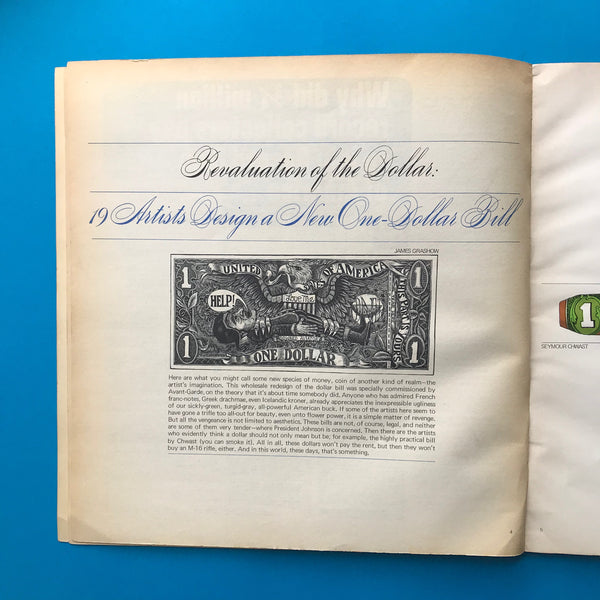 Revaluation of the Dollar:
19 Artists Design a New One-Dollar Bill
JAMES GRASHOW
1 UNITED STATES OF AMERICA 1
HELP!
1 ONE DOLLAR 1
Here are what you might call some new species of money, coin of another kind of realm—the
artist's imagination. This wholesale redesign of the dollar bill was specially commissioned by
Avant-Garde, on the theory that it's about time somebody did. Anyone who has admired French
franc-notes, Greek drachmae, even Icelandic kroner, already appreciates the inexpressible ugliness
of our sickly-green, turgid-gray, all-powerful American buck. If some of the artists here seem to
have gone a trifle too all-out for beauty, even unto flower power, it is a simple matter of revenge.
But all the vengeance is not limited to aesthetics. These bills are not, of course, legal, and neither
are some of them very tender—where President Johnson is concerned. Then there are the artists
who evidently think a dollar should not only mean but be, for example, the highly practical bill
by Chwast (you can smoke it). All in all, these dollars won't pay the rent, but then they won't
buy an M-16 rifle, either. And in this world, these days, that's something.
4
1
SEYMOUR CHWAST